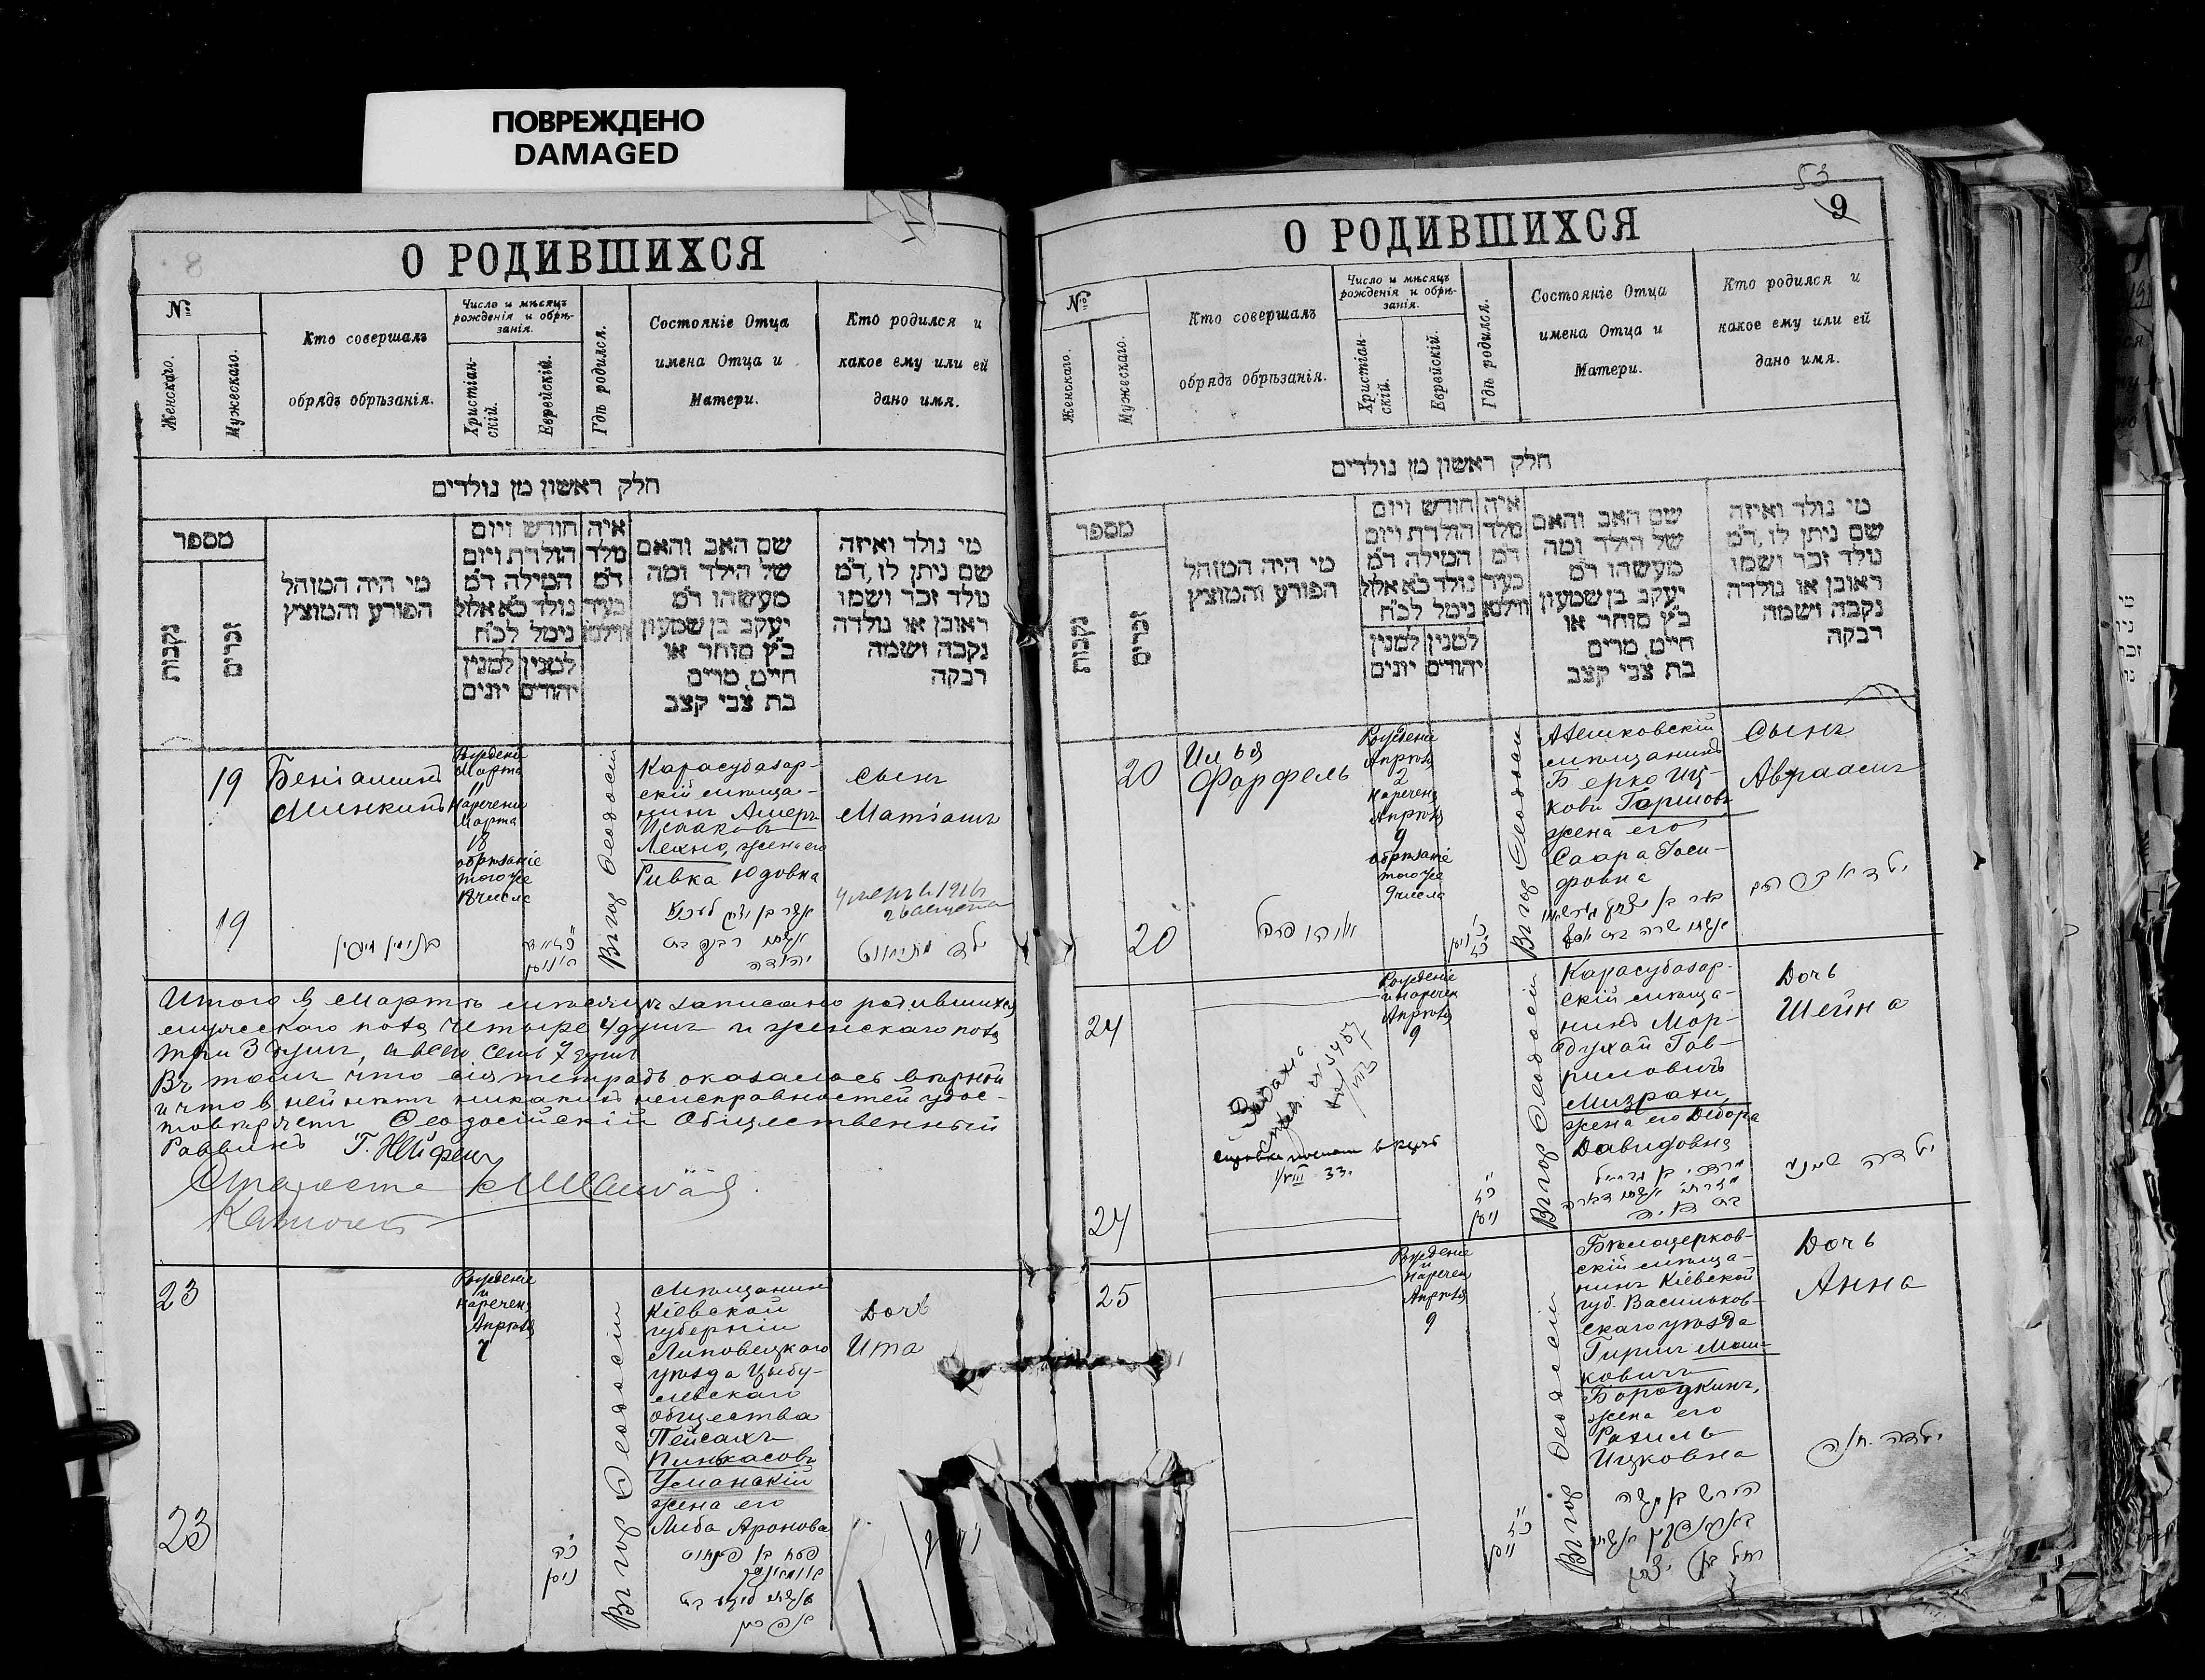 ПОВРЕЖДЕНО
DAMAGED
8
О РОДИВШИХСЯ
№
Женскаго.
Мужескаго.
Кто совершалъ
обрядъ обрѣзанія.
Число и мѣсяцъ
рожденія и обрѣ-
занія.
Христіан-
скій.
Еврейскій.
Гдѣ родился.
Состояніе Отца
имена Отца и
Матери.
Кто родился и
какое ему или ей
дано имя.
חלק ראשון מן נולדים
מספר
נקבות
זכרים
מי היה המוהל
הפורע והמוצץ
חודש ויום
הולדת ויום
המילה ד"מ
נולד כ"א אלול
נימל לכ"ח
למנין למנין
יהודים יונים
איה
מלד
ד"מ
בעיר
ווילנא
שם האב והאם
של הילד ומה
מעשהו ד"מ
יעקב בן שמעון
כ"ץ סוחר או
חייט, מרים
בת צבי קצב
מי נולד ואיזה
שם ניתן לו, ד"מ
נולד זכר ושמו
ראובן או נולדה
נקבה ושמה
רבקה
19
Беніаминъ
Минкинъ
Рожденіе
Марта
11
Наречена
Марта
18
обрѣзаніе
того же
18 числа
Въ гор Ѳеодосіи
Карасубазар-
скій мѣща-
нинъ Ашеръ
Исааковъ
Лехно, жена его
Ривка Юдовна
сынъ
Матіашъ
умеръ 1916
26 августа
19
Итого въ Мартѣ мѣсяцѣ записано родившихся
мужескаго пола четыре 4 души и женскаго пола
три 3 души, а всего семь 7 душъ
Въ томъ что сія тетрадь оказалась вѣрной
и что въ ней нѣтъ никакихъ неисправностей удос-
товѣряетъ Ѳеодосійскій Общественный
Раввинъ
Староста
23
Рожденіе
и
наречена
Апрѣля
7
Въ гор Ѳеодосіи
Мѣщанинъ
Кіевской
губерніи
Липовецкаго
уѣзда Цыбу-
левскаго
общества
Пейсахъ
Пинхасовъ
Уманскій
жена его
Либа Аронова
Дочь
Ита
23
כה
ניסן
53
9
О РОДИВШИХСЯ
№
Женскаго.
Мужескаго.
Кто совершалъ
обрядъ обрѣзанія.
Число и мѣсяцъ
рожденія и обрѣ-
занія.
Христіан-
скій.
Еврейскій.
Гдѣ родился.
Состояніе Отца
имена Отца и
Матери.
Кто родился и
какое ему или ей
дано имя.
חלק ראשון מן נולדים
מספר
נקבות
זכרים
מי היה המוהל
הפורע והמוצץ
חודש ויום
הולדת ויום
המילה ד"מ
נולד כ"א אלול
נימל לכ"ח
למנין למנין
יהודים יונים
איה
מלד
ד"מ
בעיר
ווילנא
שם האב והאם
של הילד ומה
מעשהו ד"מ
יעקב בן שמעון
כ"ץ סוחר או
חייט, מרים
בת צבי קצב
מי נולד ואיזה
שם ניתן לו, ד"מ
נולד זכר ושמו
ראובן או נולדה
נקבה ושמה
רבקה
20
Илья
Фарфель
Рожденіе
Апрѣля
2
Наречена
Апрѣля
9
обрѣзаніе
того же
9 числа
Въ гор Ѳеодосіи
мѣщанинъ
Берко Иц-
ковъ Гаршовъ
жена его
Саара Іоси-
фовна
Сынъ
Авраамъ
20
24
Рожденіе
и наречен
Апрѣля
9
Въ гор Ѳеодосіи
Карасубазар-
скій мѣща-
нинъ Мор-
духай Гав-
риловичъ
Мизрахи,
жена его Дебора
Давидовна
Дочь
Шейна
24
ניסן
25
Рожденіе
и
наречен
Апрѣля
9
Въ гор Ѳеодосіи
Бѣлоцерков-
скій мѣща-
нинъ Кіевской
губ. Васильков-
скаго уѣзда
Гиршъ Мош-
ковичъ
Бородкинъ,
жена его
Рахиль
Ицковна
Дочь
Анна
ילדה חנה
ניסן